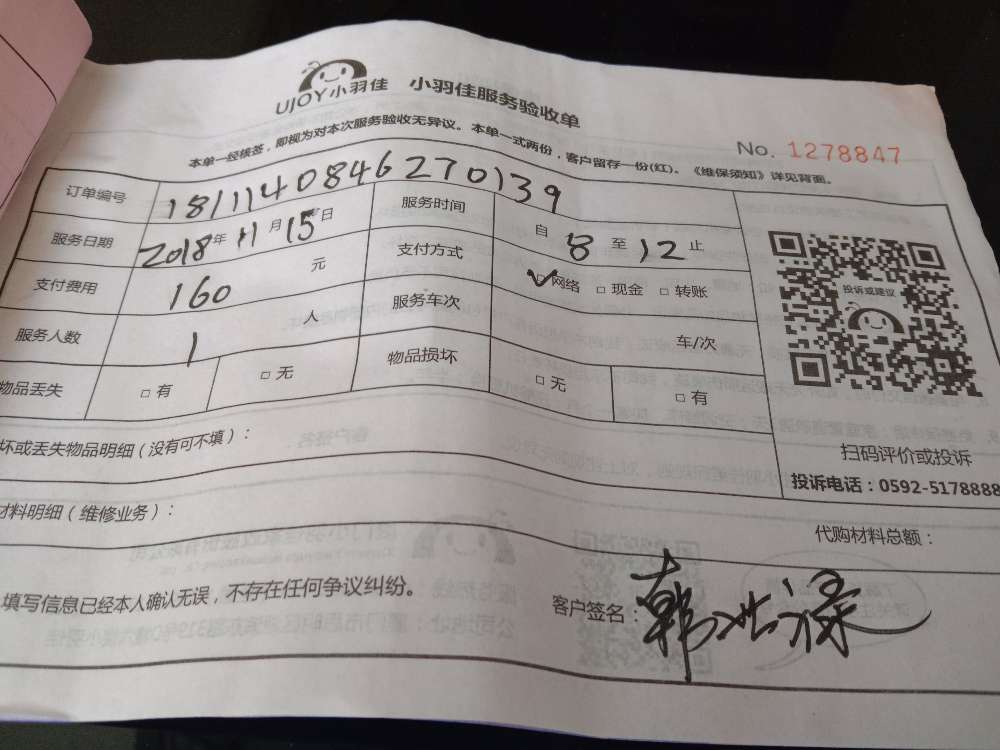 UJOY小羽佳 小羽佳服务验收单
No. 1278847
本单一经核签，即视为对本次服务验收无异议。本单一式两份，客户留存一份(红)。《维保须知》详见背面。
订单编号 181114084627０139
服务日期 2018年11月15日 服务时间 自 8 至 12 止
支付费用 160 元 支付方式 ☑网络 □现金 □转账
服务人数 1 人 服务车次 车/次
物品丢失 □有 □无 物品损坏 □无 □有
投诉或建议
扫码评价或投诉
投诉电话：0592-5178888
坏或丢失物品明细（没有可不填）：
材料明细（维修业务）： 代购材料总额：
填写信息已经本人确认无误，不存在任何争议纠纷。 客户签名：韩